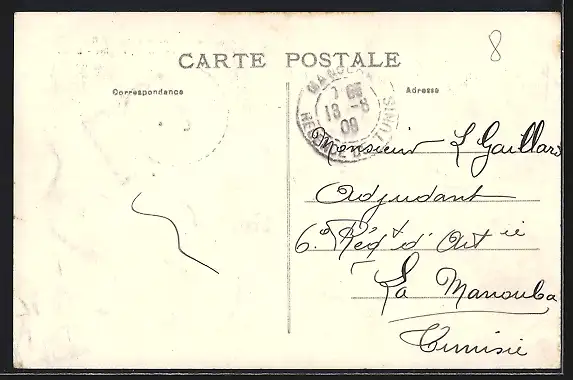 8
CARTE POSTALE
Correspondance
Adresse
MANOUBA
18 -8
09
RÉGENCE DE TUNIS
Monsieur L Gaillard
Adjudant
6e Régt d'Art ie
La Manouba
Tunisie